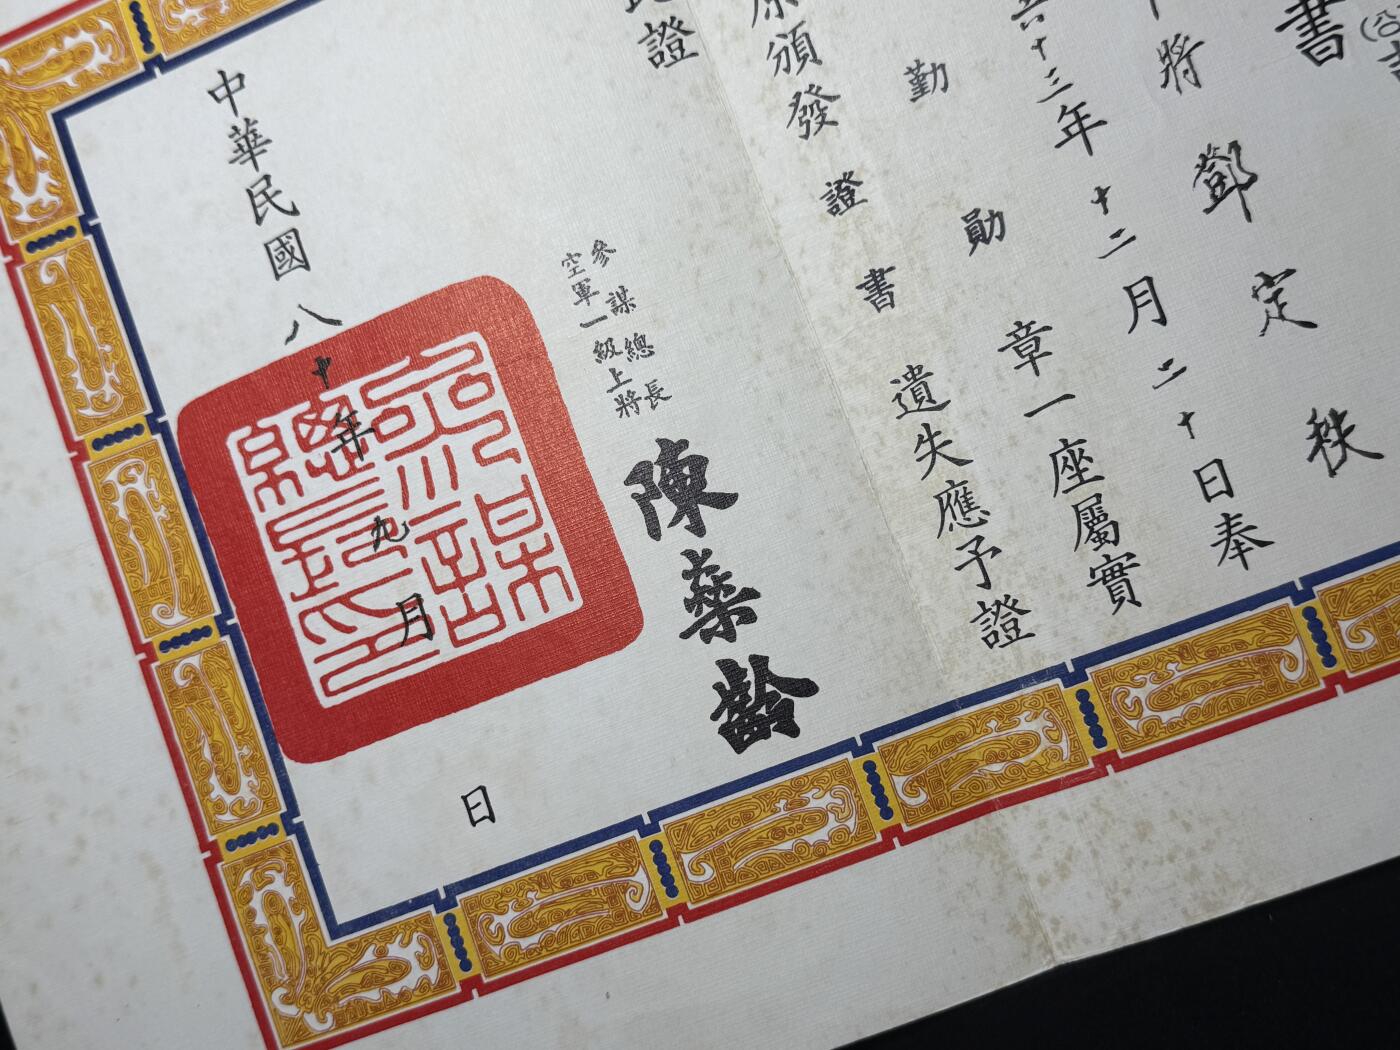 書
將鄧定秩
十三年十二月二十日奉
勤勛章一座屬實
頒發證書遺失應予證
證
參謀總長
空軍一級上將
陳燊齡
中華民國八十年九月日